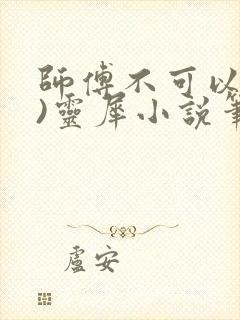 師傅不可以
)靈犀小說
盧安